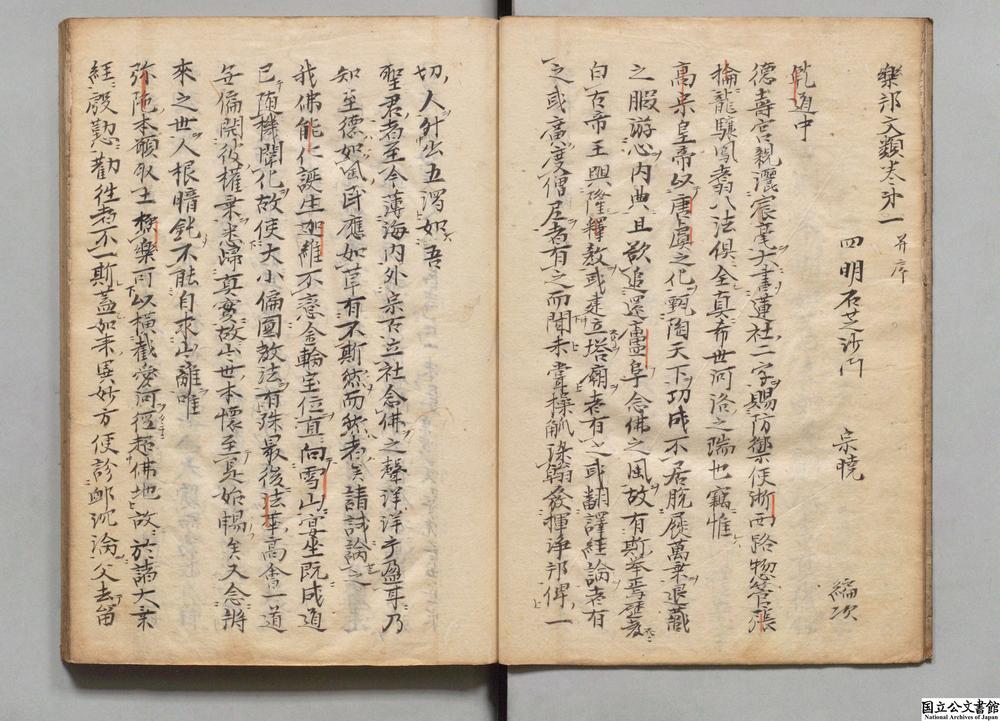 樂邦文類卷第一 并序
四明石芝沙門 宗曉 編次
乾道中
德壽宮親灑宸毫大書蓮社二字賜防禦使浙西路惣管張
掄龍驤鳳翥八法俱全真希世河洛之瑞也竊惟
高宗皇帝以唐虞之化甄陶天下功成不居脫屣萬乘退藏
之暇游心內典且欲追還廬阜念佛之風故有斯舉焉歷考
自古帝王興隆釋教或建立塔廟者有之或翻譯經論者有
之或廣度僧尼者有之而聞未嘗操觚染翰發揮淨邦俾一
切人舛出五濁如吾
聖君者至今薄海內外宗古立社念佛之聲洋洋乎盈耳乃
知至德如風民應如草有不斯然而然者矣請試論之
我佛能仁誕生迦維不戀金輪宝位直向雪山宴坐既成道
已随機闡化故使大小偏圓教法有殊最後法華高會一道
無偏開彼權乗悉歸真實故出世本懷至是始暢矣又念將
來之世人根暗鈍不能自求出離唯
弥陁本願取土極樂可以橫截愛河徑超佛地故於諸大乗
經慇懃勸徃者不一斯蓋如来異妙方便診卹沉淪父去留
国立公文書館
National Archives of Japan